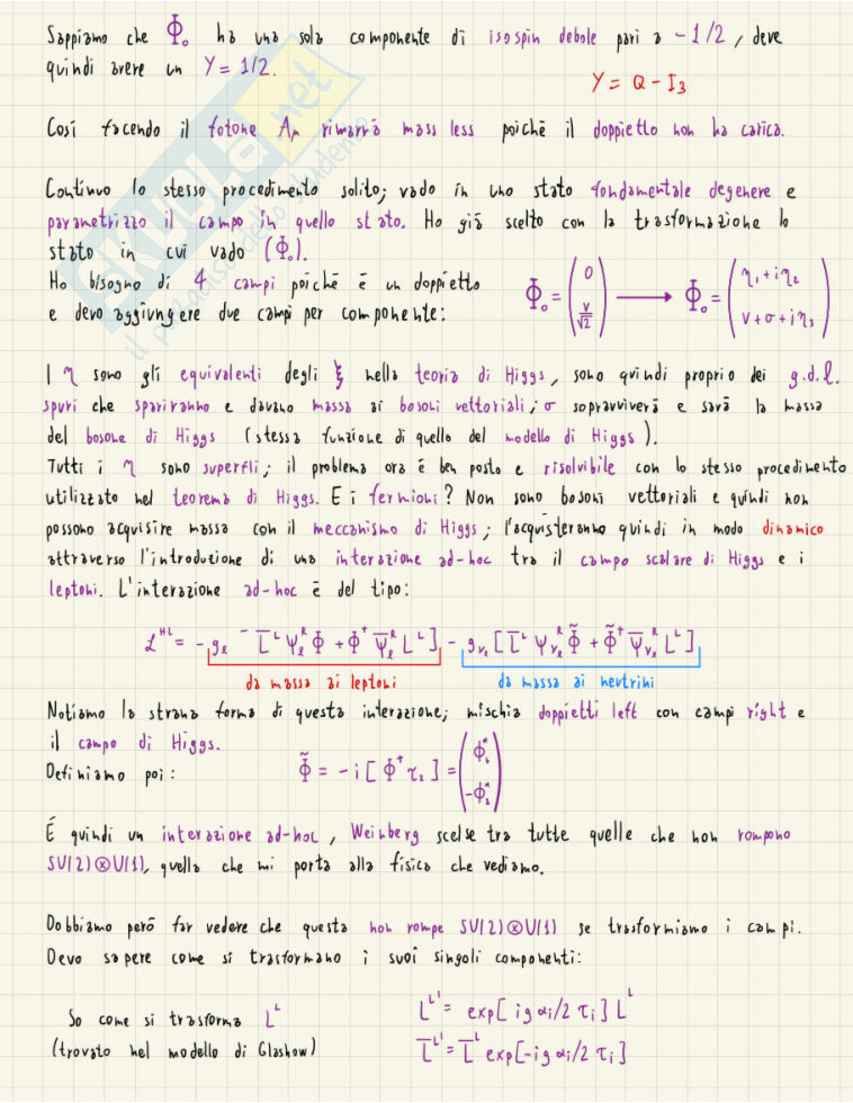 Sappiamo che Φ₀ ha una sola componente di isospin debole pari a -1/2, deve
quindi avere un Y = 1/2.
Y = Q - I₃
Così facendo il fotone Aμ rimarrà massless poichè il doppietto non ha carica.
Continuo lo stesso procedimento solito; vado in uno stato fondamentale degenere e
parametrizzo il campo in quello stato. Ho già scelto con la trasformazione lo
stato in cui vado (Φ₀).
Ho bisogno di 4 campi poichè è un doppietto
e devo aggiungere due campi per componente:
Φ₀ = (0, v/√2) → Φ₀ = (η₁+iη₂, v+σ+iη₃)
I η sono gli equivalenti degli ξ nella teoria di Higgs, sono quindi proprio dei g.d.l.
spuri che spariranno e davano massa ai bosoni vettoriali; σ sopravviverà e sarà la massa
del bosone di Higgs (stessa funzione di quello del modello di Higgs).
Tutti i η sono superfli; il problema ora è ben posto e risolvibile con lo stesso procedimento
utilizzato nel teorema di Higgs. E i fermioni? Non sono bosoni vettoriali e quindi non
possono acquisire massa con il meccanismo di Higgs; l'acquisteranno quindi in modo dinamico
attraverso l'introduzione di una interazione ad-hoc tra il campo scalare di Higgs e i
leptoni. L'interazione ad-hoc è del tipo:
ℒᴴᴸ = -gₑ ⁻ L̄ᴸ ψₑᴿ Φ + Φ† ψ̄ₑᴿ Lᴸ] - g_νₑ [L̄ᴸ ψ_νₑᴿ Φ̃ + Φ̃† ψ̄_νₑᴿ Lᴸ]
da massa ai leptoni da massa ai neutrini
Notiamo la strana forma di questa interazione; mischia doppietti left con campi right e
il campo di Higgs.
Definiamo poi: Φ̃ = -i [Φ† τ₂] = (ϕ₂*, -ϕ₁*)
È quindi un interazione ad-hoc, Weinberg scelse tra tutte quelle che non rompono
SU(2)⊗U(1), quella che mi porta alla fisica che vediamo.
Dobbiamo però far vedere che questa non rompe SU(2)⊗U(1) se trasformiamo i campi.
Devo sapere come si trasformano i suoi singoli componenti:
So come si trasforma Lᴸ
(trovato nel modello di Glashow)
Lᴸ' = exp[ig αi/2 τi] Lᴸ
L̄ᴸ' = L̄ᴸ exp[-ig αi/2 τi]